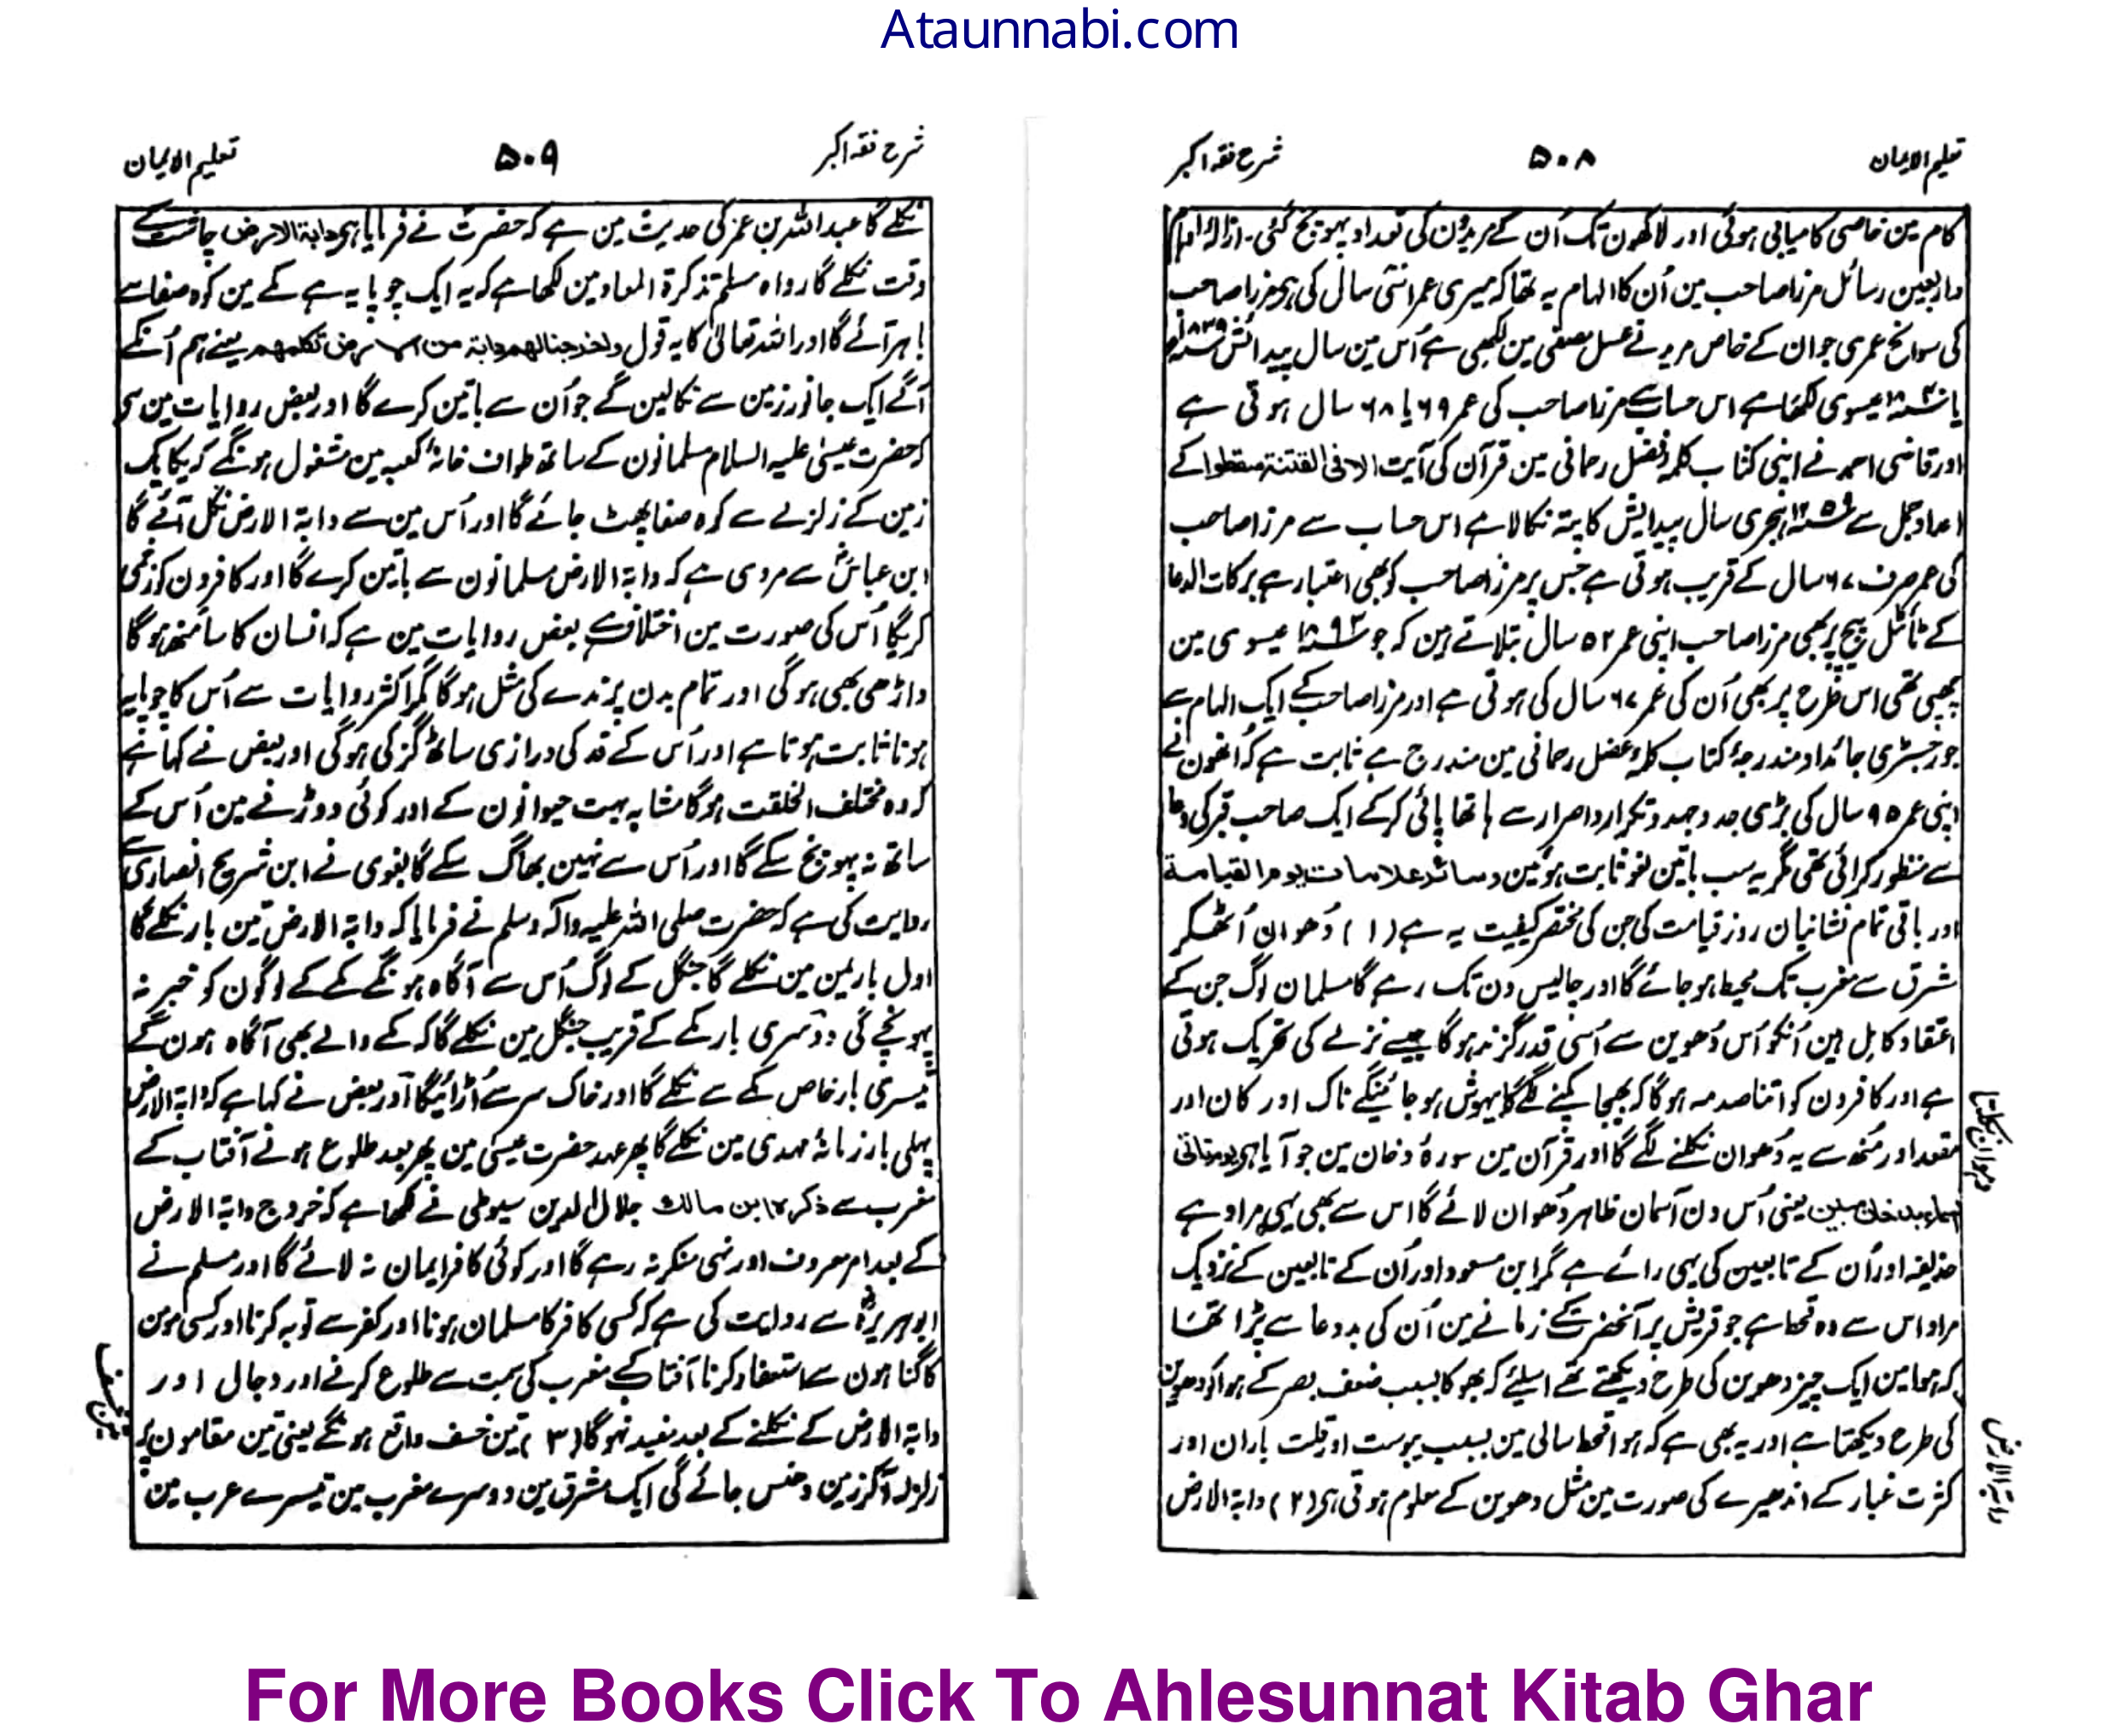 Ataunnabi.com
تعلیم الایمان ۵۰۸ شرح فقہ اکبر
کام مین خاصی کامیابی ہوئی اور لاکھون تک اُن کے مریدون کی تعداد پہونچ گئی۔ ازالہ اوہام
واربعین رسائل مرزا صاحب مین اُن کا الہام یہ تھا کہ میری عمر اسّی سال کی ہی مرزا صاحب
کی سوانح عمری جو ان کے خاص مرید نے عسل مصفی مین لکھی ہے اُس مین سال پیدائش ۱۸۳۹
یا ۱۸۴۰ عیسوی لکھا ہے اس حساب سے مرزا صاحب کی عمر ۶۹ یا ۶۸ سال ہوتی ہے
اور قاضی احمد نے اپنی کتاب کلمہ فضل رحمانی مین قرآن کی آیت الا فی الفتنة سقطوا کے
اعداد جمل سے ۱۲۵۹ ہجری سال پیدایش کا پتہ نکالا ہے اس حساب سے مرزا صاحب
کی عمر صرف ۶۷ سال کے قریب ہوتی ہے جس پر مرزا صاحب کو بھی اعتبار ہے برکات الدعا
کے ٹائٹل پیج پر بھی مرزا صاحب اپنی عمر ۵۲ سال بتلاتے ہین کہ جو ۱۸۹۳ عیسوی مین
چھپی تھی اس طرح پر بھی اُن کی عمر ۶۷ سال کی ہوتی ہے اور مرزا صاحب کے ایک الہام سے
جو رجسٹری جائداد مندرجۂ کتاب کلمۂ فضل رحمانی مین مندرج ہے ثابت ہے کہ اُنھون نے
اپنی عمر ۹۵ سال کی بڑی جد و جہد و تکرار و اصرار سے ہاتھا پائی کر کے ایک صاحب قبر کی دعا
سے منظور کرائی تھی مگر یہ سب باتین لغو ثابت ہوئین وسائر علامات یوم القیامة
اور باقی تمام نشانیان روز قیامت کی جن کی مختصر کیفیت یہ ہے (۱) دُھوان اُٹھکر
شرق سے مغرب تک محیط ہو جائے گا اور چالیس دن تک رہے گا مسلمان لوگ جن کے
اعتقاد کامل ہین اُنکو اُس دُھوین سے اُسی قدر گزند ہو گا جیسے نزلے کی تحریک ہوتی
ہے اور کافرون کو اتنا صدمہ ہو گا کہ بھیجا پکنے لگے گا بیہوش ہو جائینگے ناک اور کان اور
مقعد اور مُنھ سے یہ دُھوان نکلنے لگے گا اور قرآن مین سورۂ دخان مین جو آیا ہی یوم تاتی
السماء بدخان مبین یعنی اُس دن آسمان ظاہر دُھوان لائے گا اس سے بھی یہی مراد ہے
حذیفہ اور اُن کے تابعین کی یہی رائے ہے مگر ابن مسعود اور اُن کے تابعین کے نزدیک
مراد اس سے وہ قحط ہے جو قریش پر آنحضرت کے زمانے مین اُن کی بد دعا سے پڑا تھا
کہ ہوا مین ایک چیز دھوین کی طرح دیکھتے تھے اسلیئے کہ بھوکا بسبب ضعف بصر کے ہوا کو دھوین
کی طرح دیکھتا ہے اور یہ بھی ہے کہ ہوا قحط سالی مین بسبب یبوست اور قلت باران اور
کثرت غبار کے اندھیرے کی صورت مین مثل دھوین کے معلوم ہوتی ہی (۲) دابۃ الارض
دھوان نکلنا
دابۃ الارض
شرح فقہ اکبر ۵۰۹ تعلیم الایمان
نکلے گا عبد اللہ بن عمر کی حدیث مین ہے کہ حضرت نے فرمایا ہی دابة الارض چاشت کے
وقت نکلے گا رواہ مسلم تذکرۃ المعاد مین لکھا ہے کہ یہ ایک چوپایہ ہے کے مین کوہ صفا سے
باہر آئے گا اور اللہ تعالیٰ کا یہ قول واخرجنا لهم دابة من الارض تکلمهم یعنے ہم اُنکے
آگے ایک جانور زمین سے نکالین گے جو اُن سے باتین کرے گا اور بعض روایات مین ہی
کہ حضرت عیسیٰ علیہ السلام مسلمانون کے ساتھ طواف خانۂ کعبہ مین مشغول ہونگے کہ یکایک
زمین کے زلزلے سے کوہ صفا پھٹ جائے گا اور اُس مین سے دابۃ الارض نکل آئے گا
ابن عباس سے مروی ہے کہ دابۃ الارض مسلمانون سے باتین کرے گا اور کافرون کو زخمی
کریگا اُس کی صورت مین اختلاف ہے بعض روایات مین ہے کہ انسان کا سا مُنھ ہو گا
داڑھی بھی ہوگی اور تمام بدن پرندے کی مثل ہو گا مگر اکثر روایات سے اُس کا چوپایہ
ہونا ثابت ہوتا ہے اور اُس کے قد کی درازی ساٹھ گز کی ہوگی اور بعض نے کہا ہے
کہ وہ مختلف الخلقت ہوگا مشابہ بہت حیوانون کے اور کوئی دوڑنے مین اُس کے
ساتھ نہ پہونچ سکے گا اور اُس سے نہین بھاگ سکے گا بغوی نے ابن شریح انصاری سے
روایت کی ہے کہ حضرت صلی اللہ علیہ وآلہ وسلم نے فرمایا کہ دابۃ الارض تین بار نکلے گا
اول بار یمن مین نکلے گا جنگل کے لوگ اُس سے آگاہ ہونگے مکے کے لوگون کو خبر نہ
پہونچے گی دوسری بار مکے کے قریب جنگل مین نکلے گا کہ مکے والے بھی آگاہ ہون گے
تیسری بار خاص مکے سے نکلے گا اور خاک سر سے اُڑائیگا اور بعض نے کہا ہے کہ دابۃ الارض
پہلی بار زمانۂ مہدی مین نکلے گا پھر عہد حضرت عیسیٰ مین پھر بعد طلوع ہونے آفتاب کے
مغرب سے ذکرہ ابن مالك جلال الدین سیوطی نے لکھا ہے کہ خروج دابۃ الارض
کے بعد امر معروف اور نہی منکر نہ رہے گا اور کوئی کافر ایمان نہ لائے گا اور مسلم نے
ابو ہریرہ سے روایت کی ہے کہ کسی کافر کا مسلمان ہونا اور کفر سے توبہ کرنا اور کسی مومن
کا گناہون سے استغفار کرنا آفتاب کے مغرب کی سمت سے طلوع کرنے اور دجال اور
دابۃ الارض کے نکلنے کے بعد مفید نہوگا (۳) تین خسف واقع ہونگے یعنی تین مقامون پر
زلزلہ آکر زمین دھنس جائے گی ایک مشرق مین دوسرے مغرب مین تیسرے عرب مین
تین خسف
For More Books Click To Ahlesunnat Kitab Ghar